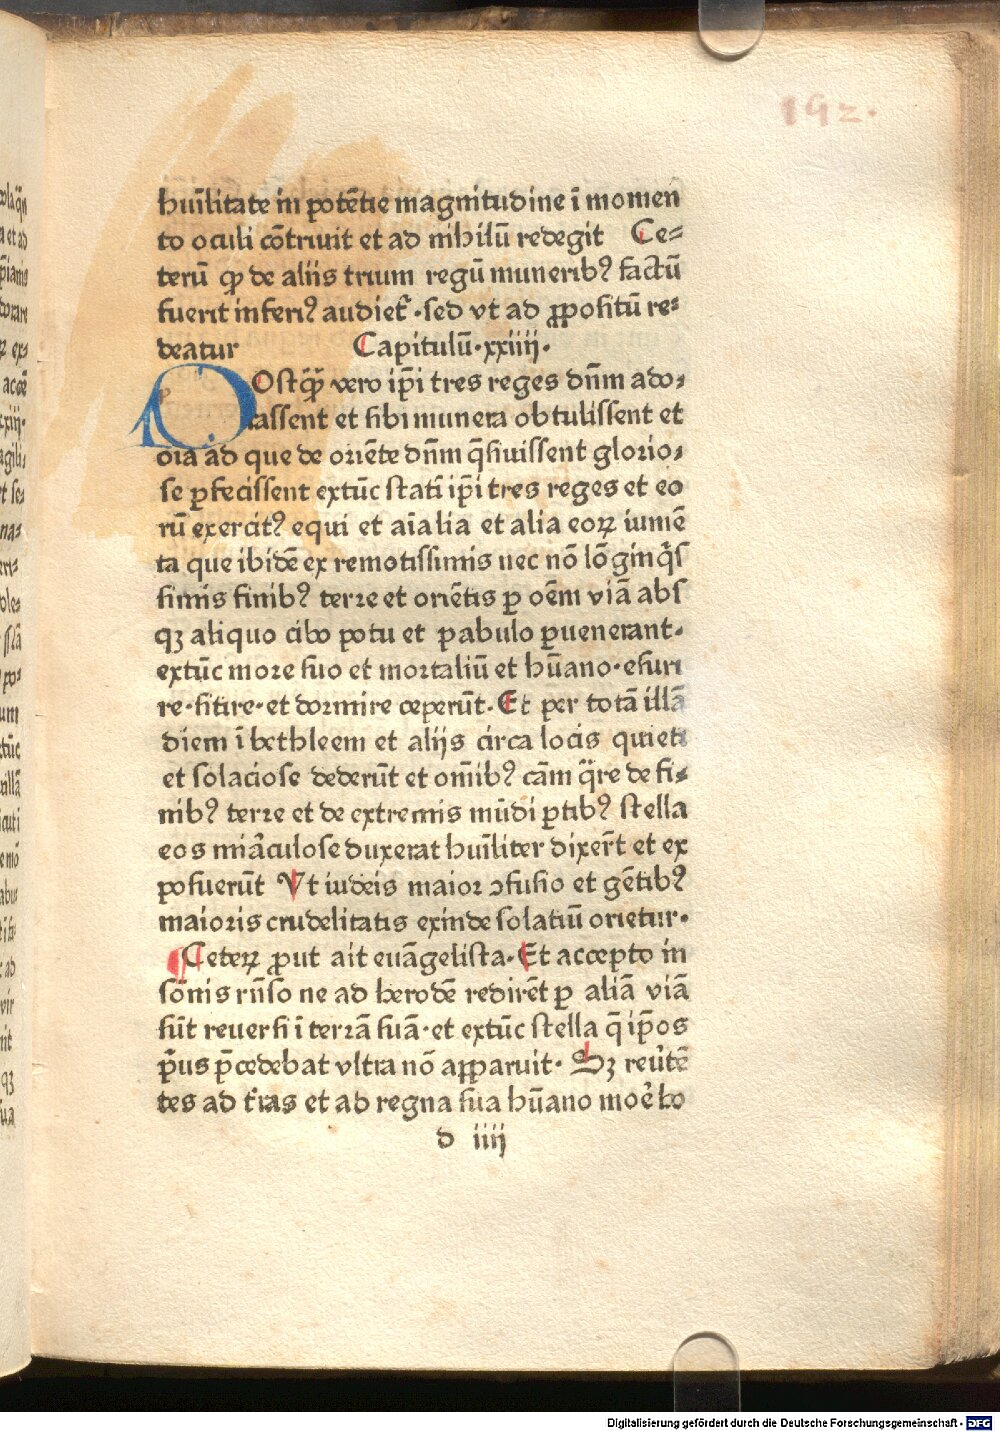 192.
hūilitate in potētie magnitudine ī momen
to oculi cōtriuit et ad nihilū redegit Ce⸗
terū qꝫ de aliis trium regū munerib⁹ factū
fuerit inferi⁹ audiet᷑ · sed vt ad ꝓpositū re⸗
deatur Capitulū · xxiiij ·
POstq̄ȝ vero ip̄i tres reges dn̄m ado⸗
rassent et sibi munera obtulissent et
oīa ad que de oriēte dn̄m q̄siuissent glorio⸗
se ꝑfecissent extūc statī ip̄i tres reges et eo
rū exercit⁹ equi et aīalia et alia eoꝝ iumē
ta que ibidē ex remotissimis nec nō lōginq̄s
simis finib⁹ terre et oriētis ꝑ oēm viā abs
qꝫ aliquo cibo potu et pabulo ꝑuenerant·
extūc more suo et mortaliū et hūano·esuri
re·sitire·et dormire ceperūt· Et per totā illā
diem ī bethleem et aliis circa locis quieti
et solaciose dederūt et om̄ib⁹ cām q̄re de fi⸗
nib⁹ terre et de extremis mūdi ꝑtib⁹ stella
eos mirāculose duxerat hūiliter dixer̄t et ex
posuerūt Vt iudeis maior ↄfusio et gētib⁹
maioris crudelitatis exinde solatiū orietur·
¶Ceteꝝ ꝓut ait euāgelista· Et accepto in
sōnis rn̄so ne ad herodē redirēt ꝑ aliā viā
sūt reuersi ī terrā suā·et extūc stella q̄ ip̄os
p̄us p̄cedebat vltra nō apparuit· Sꝫ reūtē
tes ad t̄ras et ad regna sua hūano moē ho
d iiij
Digitalisierung gefördert durch die Deutsche Forschungsgemeinschaft - DFG